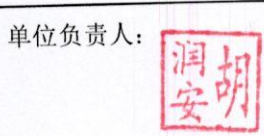 单位负责人：
胡润安